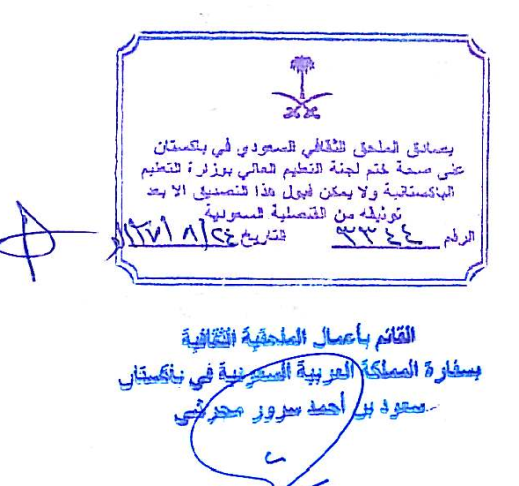 يصادق الملحق الثقافي السعودي في باكستان
على صحة ختم لجنة التعليم العالي بوزارة التعليم
الباكستانية ولا يمكن قبول هذا التصديق الا بعد
توثيقه من القنصلية السعودية
الرقم ٣٣٤٤ التاريخ ٢٤/٨/
القائم بأعمال الملحقية الثقافية
بسفارة المملكة العربية السعودية في باكستان
سعود بن أحمد سرور